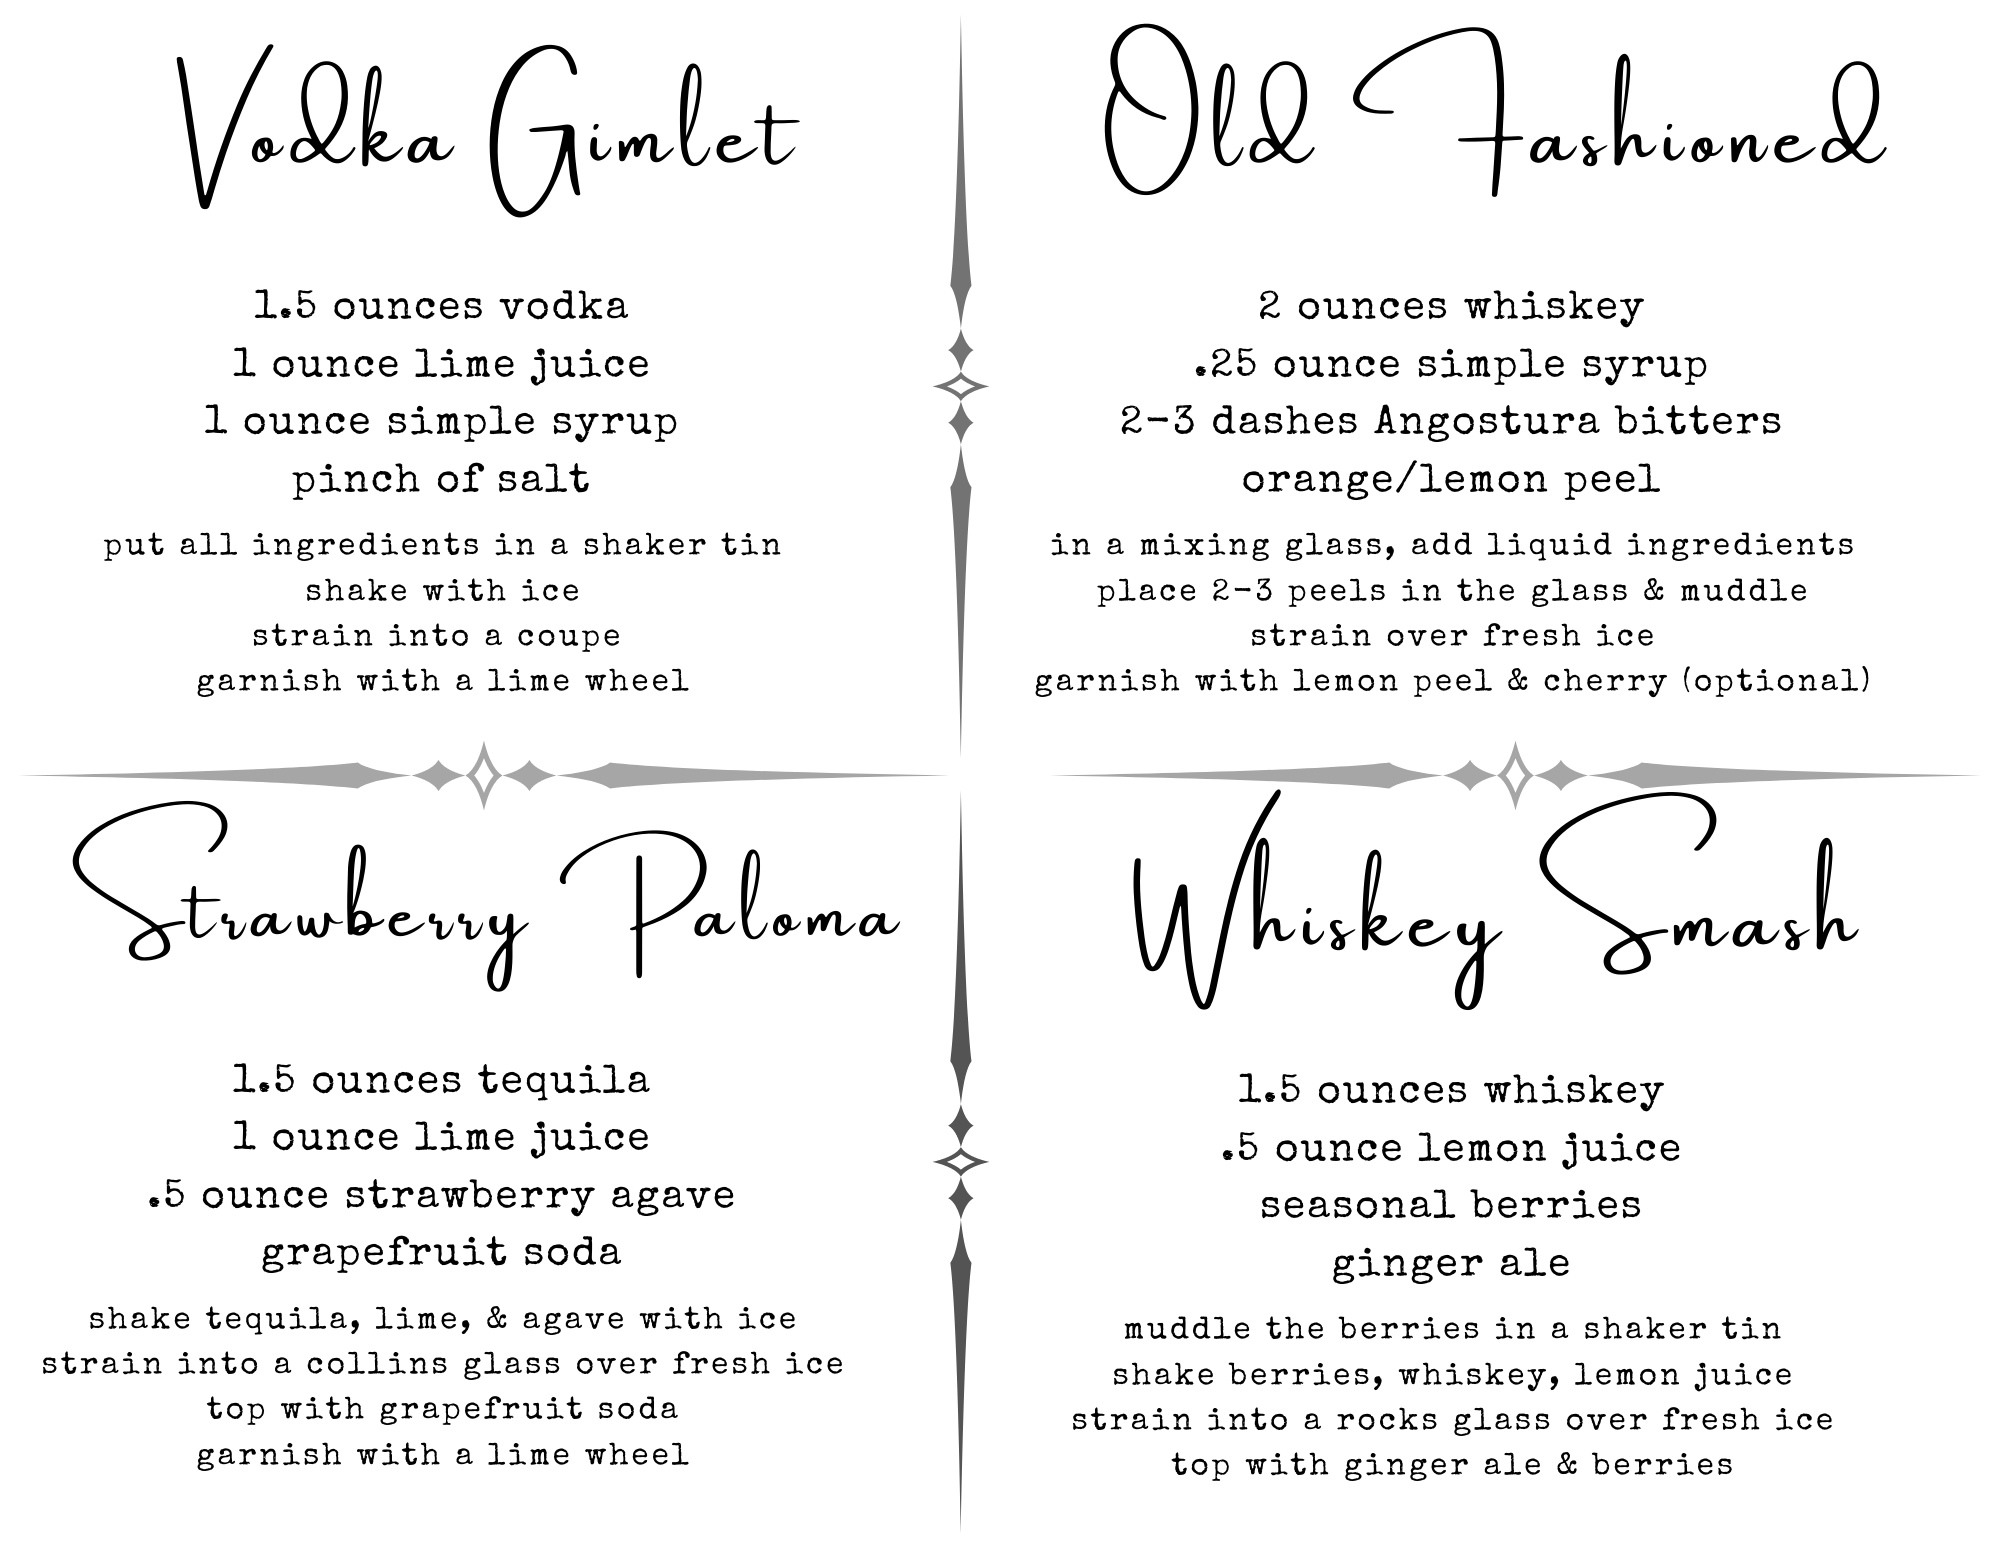 Vodka Gimlet
1.5 ounces vodka
1 ounce lime juice
1 ounce simple syrup
pinch of salt
put all ingredients in a shaker tin
shake with ice
strain into a coupe
garnish with a lime wheel
Old Fashioned
2 ounces whiskey
.25 ounce simple syrup
2-3 dashes Angostura bitters
orange/lemon peel
in a mixing glass, add liquid ingredients
place 2-3 peels in the glass & muddle
strain over fresh ice
garnish with lemon peel & cherry (optional)
Strawberry Paloma
1.5 ounces tequila
1 ounce lime juice
.5 ounce strawberry agave
grapefruit soda
shake tequila, lime, & agave with ice
strain into a collins glass over fresh ice
top with grapefruit soda
garnish with a lime wheel
Whiskey Smash
1.5 ounces whiskey
.5 ounce lemon juice
seasonal berries
ginger ale
muddle the berries in a shaker tin
shake berries, whiskey, lemon juice
strain into a rocks glass over fresh ice
top with ginger ale & berries